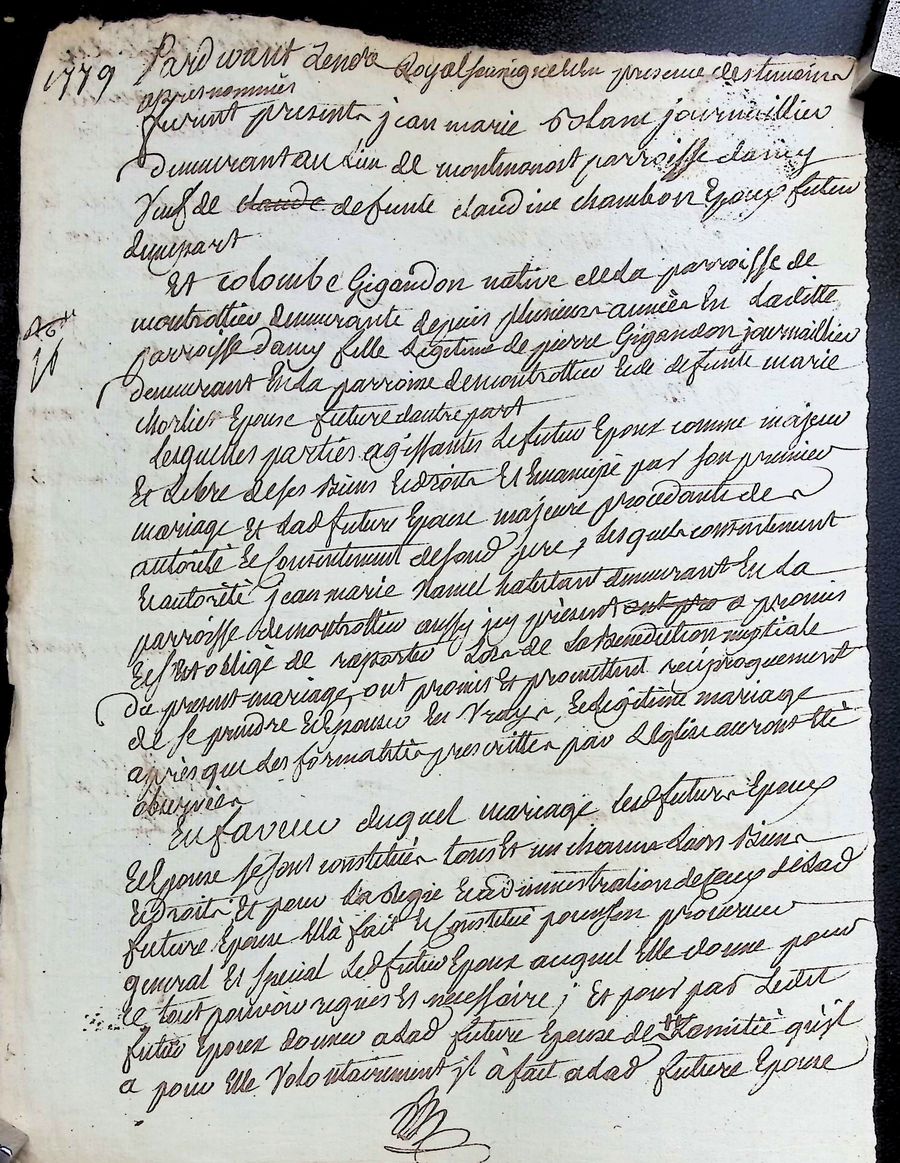 1779
Pardevant le no.re Royal soussigné et en presence des temoins
apres nommés
furent present jean marie journaillier
demeurant au lieu de montmenot parroisse damy
Veuf de claude defunte claudine chambon Epoux futur
dune part
Et colombe Gigandon native de la parroisse de
montrottier demeurante depuis plusieurs année En ladite
parroisse damy fille Legitime de pierre Gigandon journaillier
demeurant En la parroisse de montrottier et de defunte marie
chorlier Epouse future dautre part
Lesquelles parties agissantes Le futur Epoux comme majeur
Et Libre de ses Biens et droits Et Emancipé par son premier
mariage Et lad future Epouse majeure procedante de
autorité et consentement de sond pere, Lesquels consentement
et autorité jean marie habitant demeurant En la
parroisse de montrottier aussy jcy présent ont pro a promis
et s'est obligé de raporter Lors de La Benediction nuptiale
du present mariage, ont promis Et promettent reciproquement
de se prendre et Epouser En Vray et legitime mariage
après que les formalités prescrittes par L'Eglise auront été
observées
En faveur duquel mariage lesd futurs Epoux
et Epouse se sont constitués tous Et un chacun Leurs Biens
et droits Et pour La Regie et administration de Ceux de Lad
future Epouse Ella fait et Constitué pour son procureur
general Et special Led futur Epoux auquel Elle donne pour
ce tout pouvoir requis Et nécessaire; Et pour par Ledit
futur Epoux donner a lad future Epouse de L'amitié qu'il
a pour Elle Volontairement jl à fait a lad future Epouse